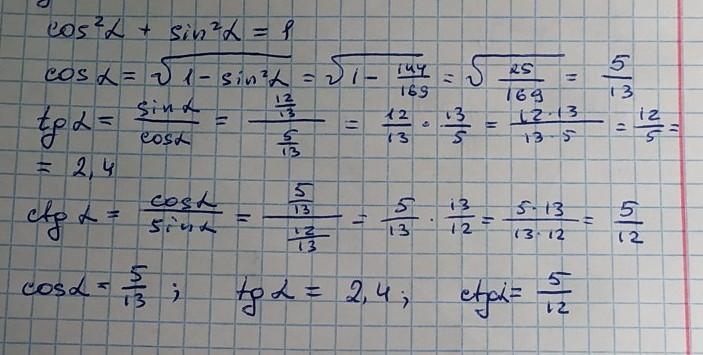 cos²α + sin²α = 1
cos α = √(1 - sin²α) = √(1 - 144/169) = √(25/169) = 5/13
tg α = sinα/cosα = (12/13)/(5/13) = 12/13 · 13/5 = 12·13/13·5 = 12/5 =
= 2,4
ctg α = cosα/sinα = (5/13)/(12/13) = 5/13 · 13/12 = 5·13/13·12 = 5/12
cosα = 5/13 ; tg α = 2,4 ; ctgα = 5/12